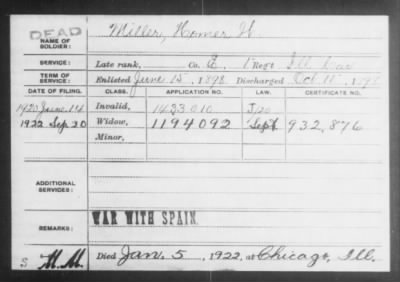 DEAD
NAME OF SOLDIER: Miller, Homer H.
SERVICE: Late rank, Co. E, 1 Reg't Ill. Cav.
TERM OF SERVICE: Enlisted June 15, 1898 Discharged Oct 11, 1898
DATE OF FILING. CLASS. APPLICATION NO. LAW. CERTIFICATE NO.
1920 June 14 Invalid, 1433010
1922 Sep. 30 Widow, 1194092 Sept 932,876
Minor,
ADDITIONAL SERVICES:
WAR WITH SPAIN.
REMARKS:
S M.M. Died Jan. 5, 1922, at Chicago, Ill.